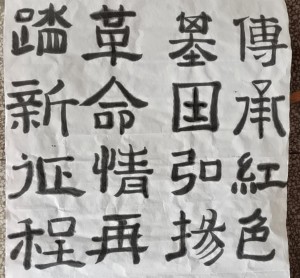 傳承紅色
基因弘揚
革命情再
踏新征程